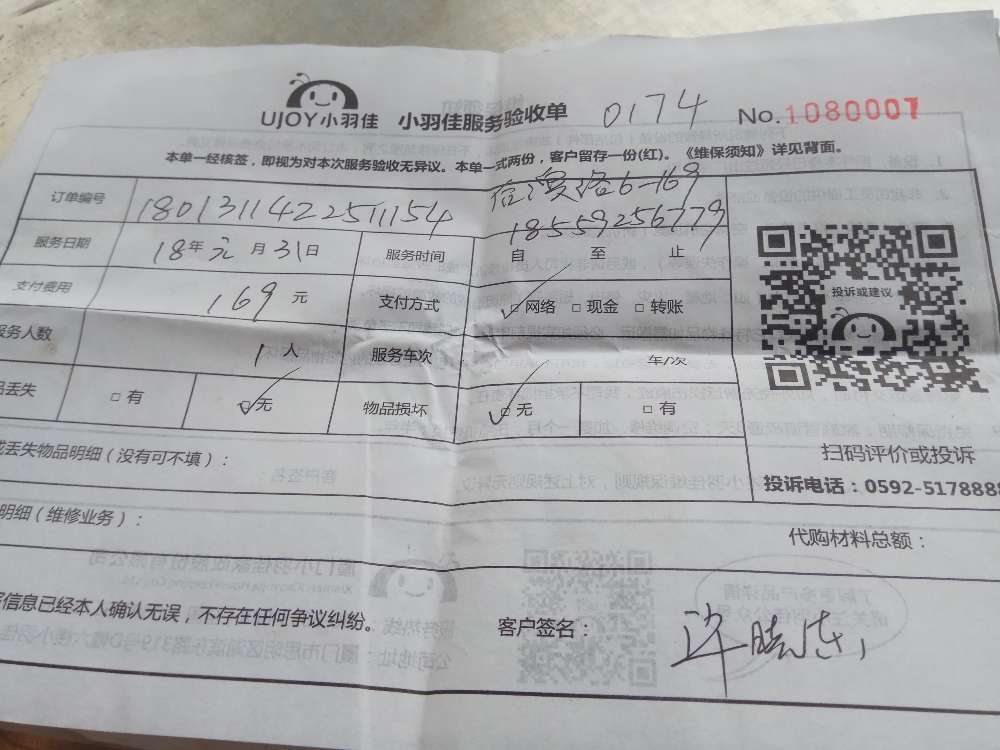 UJOY小羽佳 小羽佳服务验收单 0174 No.1080007
本单一经核签，即视为对本次服务验收无异议。本单一式两份，客户留存一份(红)。《维保须知》详见背面。
6-169
订单编号 1801311422511154 18559256779
服务日期 18年元月31日 服务时间 自 至 止
支付费用 169元 支付方式 ☑网络 □现金 □转账
投诉或建议
服务人数 1人 服务车次 车/次
品丢失 □有 ☑无 物品损坏 ☑无 □有
或丢失物品明细（没有可不填）：
扫码评价或投诉
投诉电话：0592-5178888
明细（维修业务）：
代购材料总额：
信息已经本人确认无误，不存在任何争议纠纷。
客户签名：